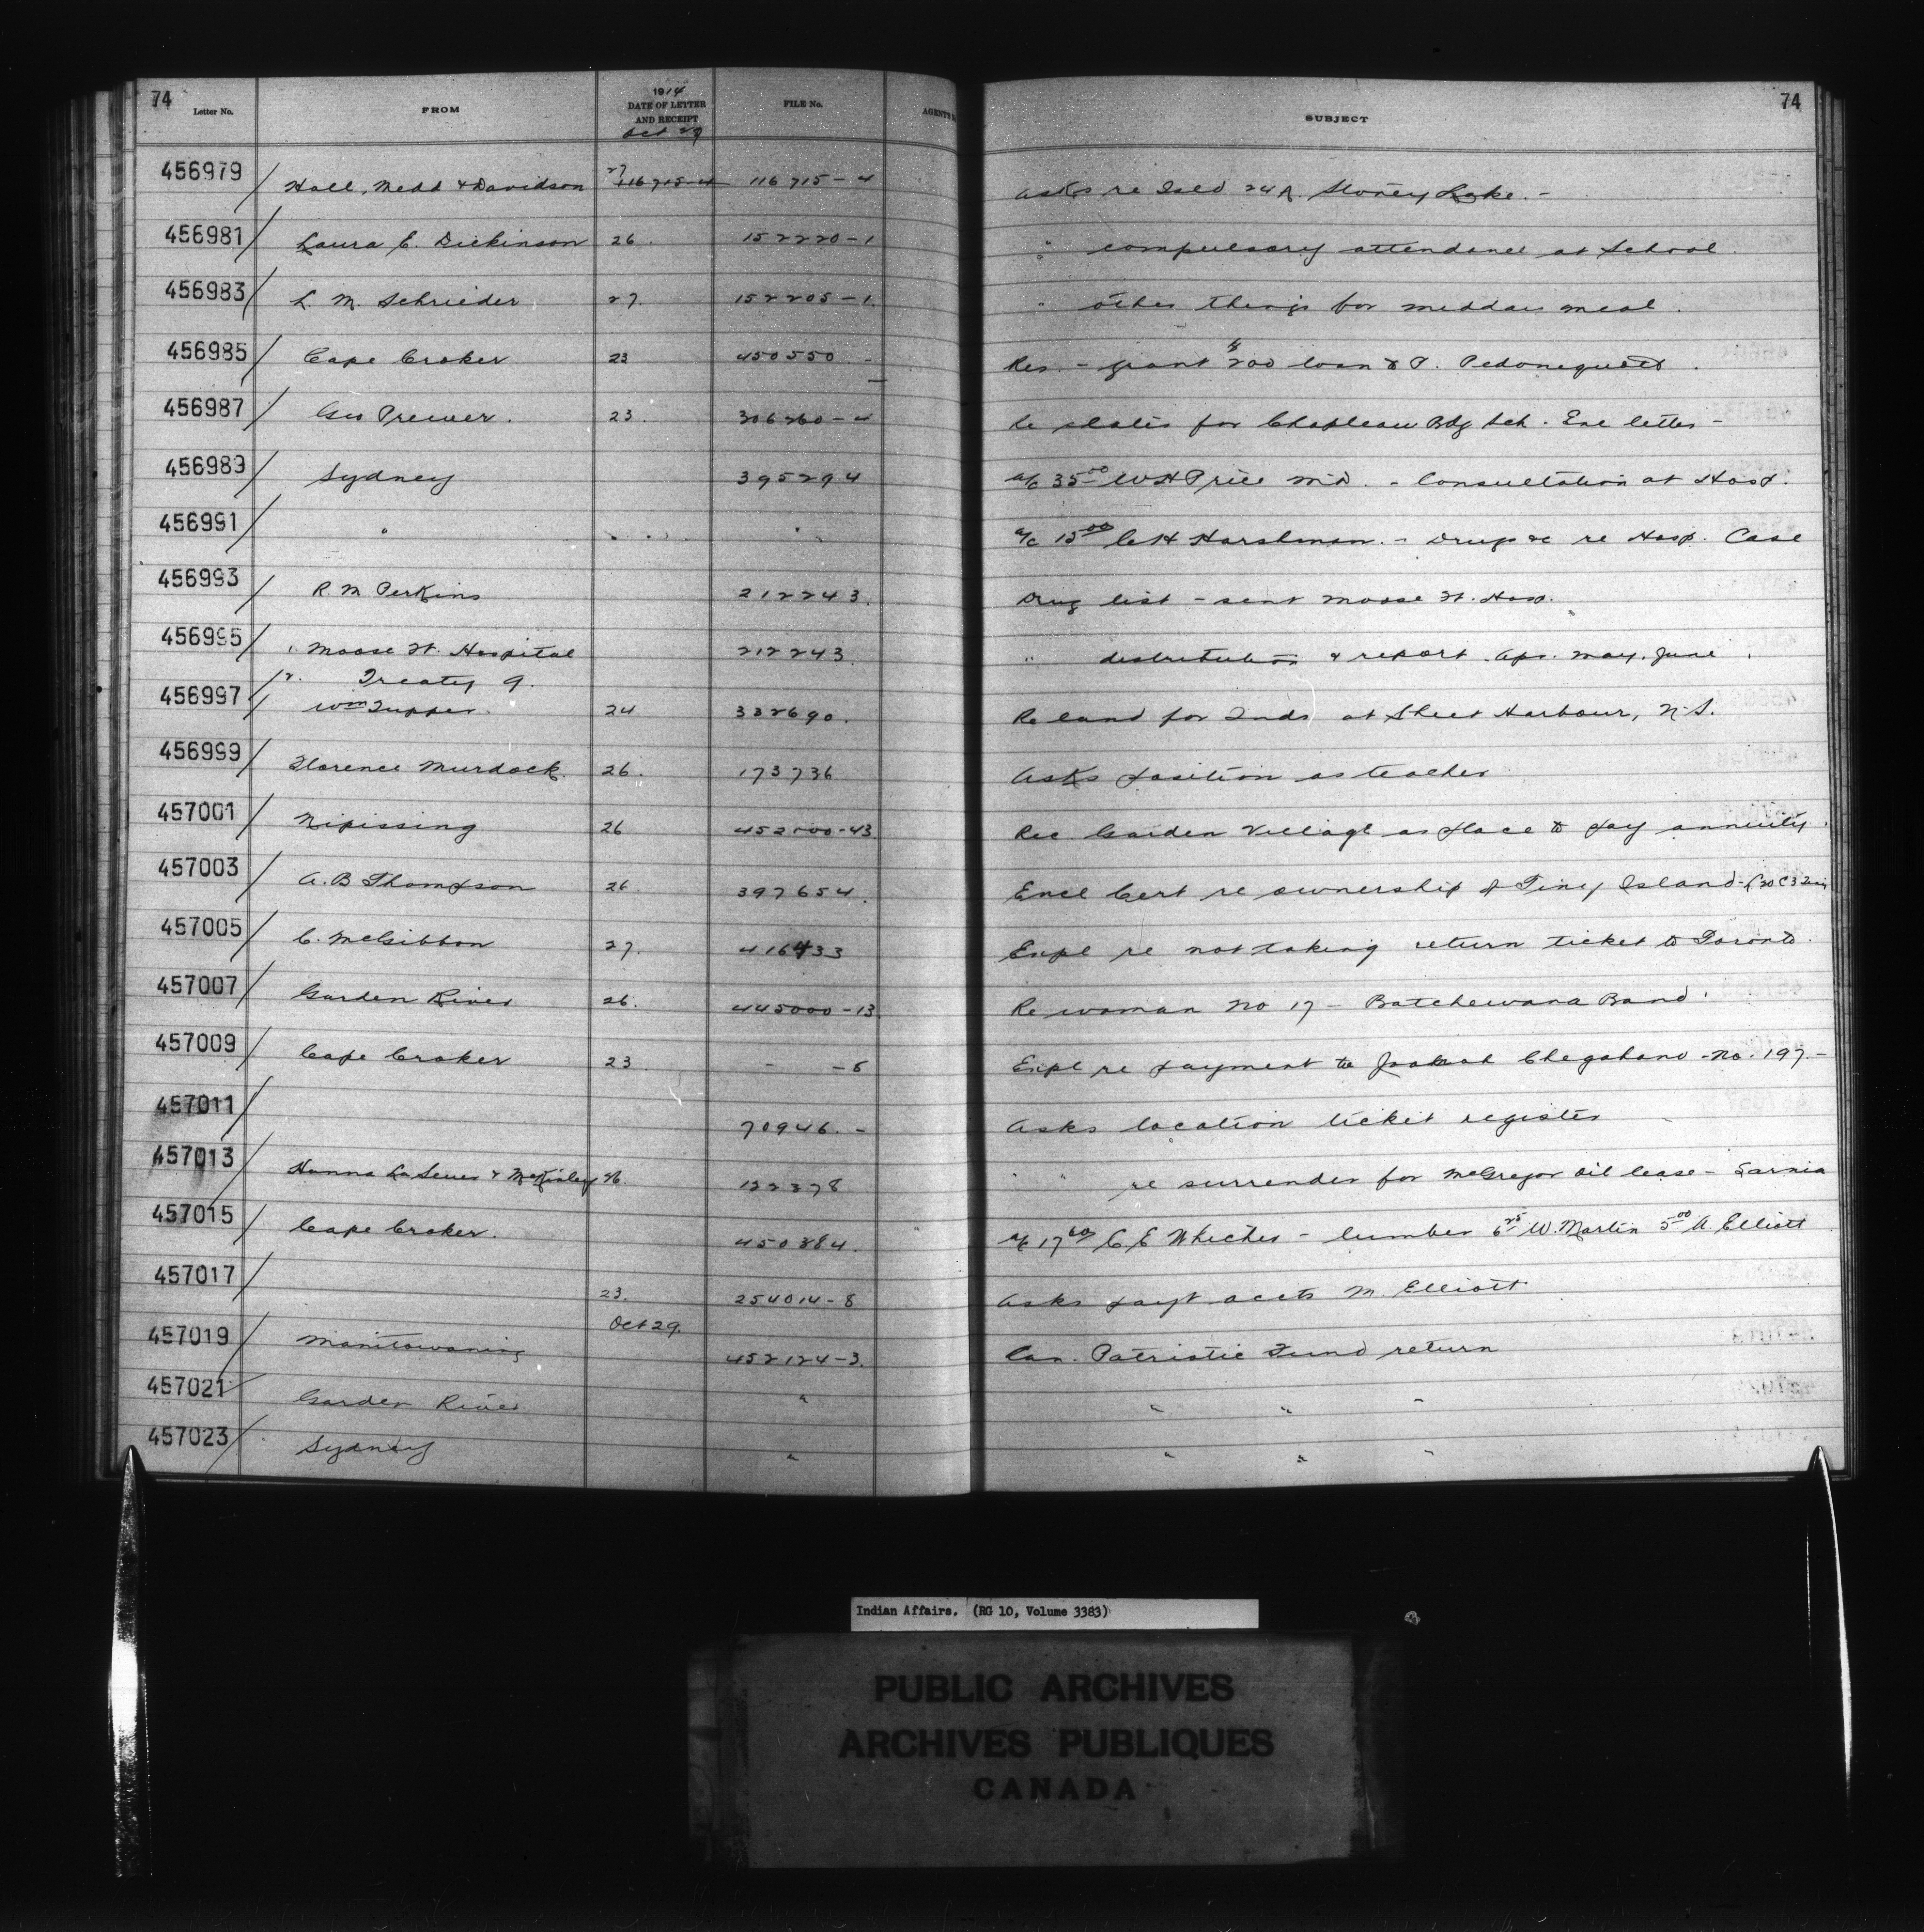 74 74
Letter No. FROM 1914 DATE OF LETTER AND RECEIPT FILE No. AGENT'S SUBJECT
Oct 29
456979 Hall, Medd & Davidson 27 116715-4 116715-4 Asks re Isld 24A. Stoney Lake. -
456981 Laura E. Dickinson 26. 152220-1 " compulsory attendance at School.
456983 L. M. Schrieder 27. 152205-1. " other things for midday meal.
456985 Cape Croker 23 450550 - Res. - grant $200 loan to P.
456987 Geo Prewer. 23. 306260-4 Re slates for Chapleau Bdg Sch. Enc letter -
456989 Sydney 395294 a/c 35.00 W H Price MD. - Consultation at Hosp.
456991 " " a/c 15.00 C H Harshman. - Drugs &c re Hosp. Case
456993 R. M Perkins 212243. Drug list - sent Moose Ft. Hosp.
456995 1. Moose Ft. Hospital 212243. " distribution & report. Apr. May. June.
2. Treaty 9.
456997 Wm Tupper. 24 332690. Re land for Inds at Sheet Harbour, N.S.
456999 Florence Murdock. 26. 173736 Asks position as teacher
457001 Nipissing 26 452000-43. Rec Garden Village as place to pay annuity.
457003 A. B Thompson 26. 397654. Encl Cert re ownership of Tiny Island -
457005 C. McGibbon 27. 416433 Expl re not taking return ticket to Toronto.
457007 Garden River 26. 445000-13. Re woman No 17 - Batchewana Band.
457009 Cape Croker 23. - -6 Expl re payment to - No. 197. -
457011 70946. - Asks location ticket register
457013 Hanna La Seuer & McKinley 26. 122378 " re surrender for McGregor Oil lease - Sarnia
457015 Cape Croker. 450384. a/c 17.60 C. E Whicher - lumber 6.25 W. Martin 5.00 A. Elliott
457017 23. 254014-8 Asks payt accts M. Elliott
Oct 29.
457019 Manitowaning 452124-3. Can. Patriotic Fund return
457021 Garden River " " " "
457023 Sydney " " " "
Indian Affairs. (RG 10, Volume 3383)
PUBLIC ARCHIVES
ARCHIVES PUBLIQUES
CANADA